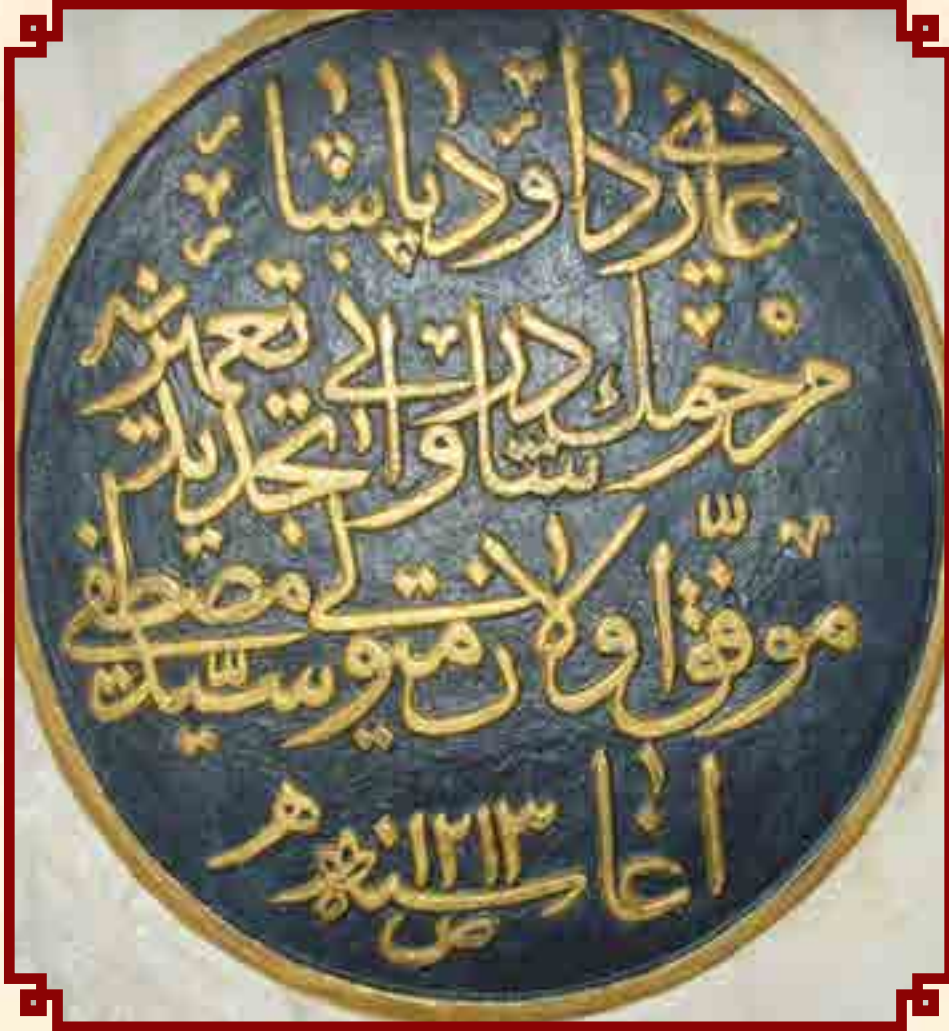 غازی داود پاشا
مرحومك شادروانی تعمیر تجدیدینه
موفق اولان متولی سید مصطفی
اغا سنه ١٢١٣ ص